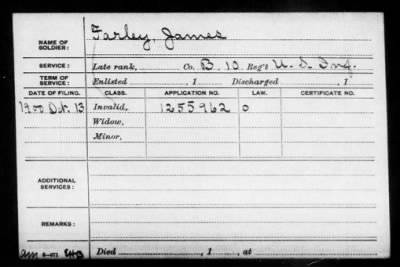 NAME OF SOLDIER: Farley, James
SERVICE: Late rank, Co. B, 10 Reg't U. S. Inf.
TERM OF SERVICE: Enlisted , 1 Discharged , 1
DATE OF FILING. CLASS. APPLICATION NO. LAW. CERTIFICATE NO.
1900 Oct. 13 Invalid, 1255962 0
Widow,
Minor,
ADDITIONAL SERVICES:
REMARKS:
Died , 1 , at